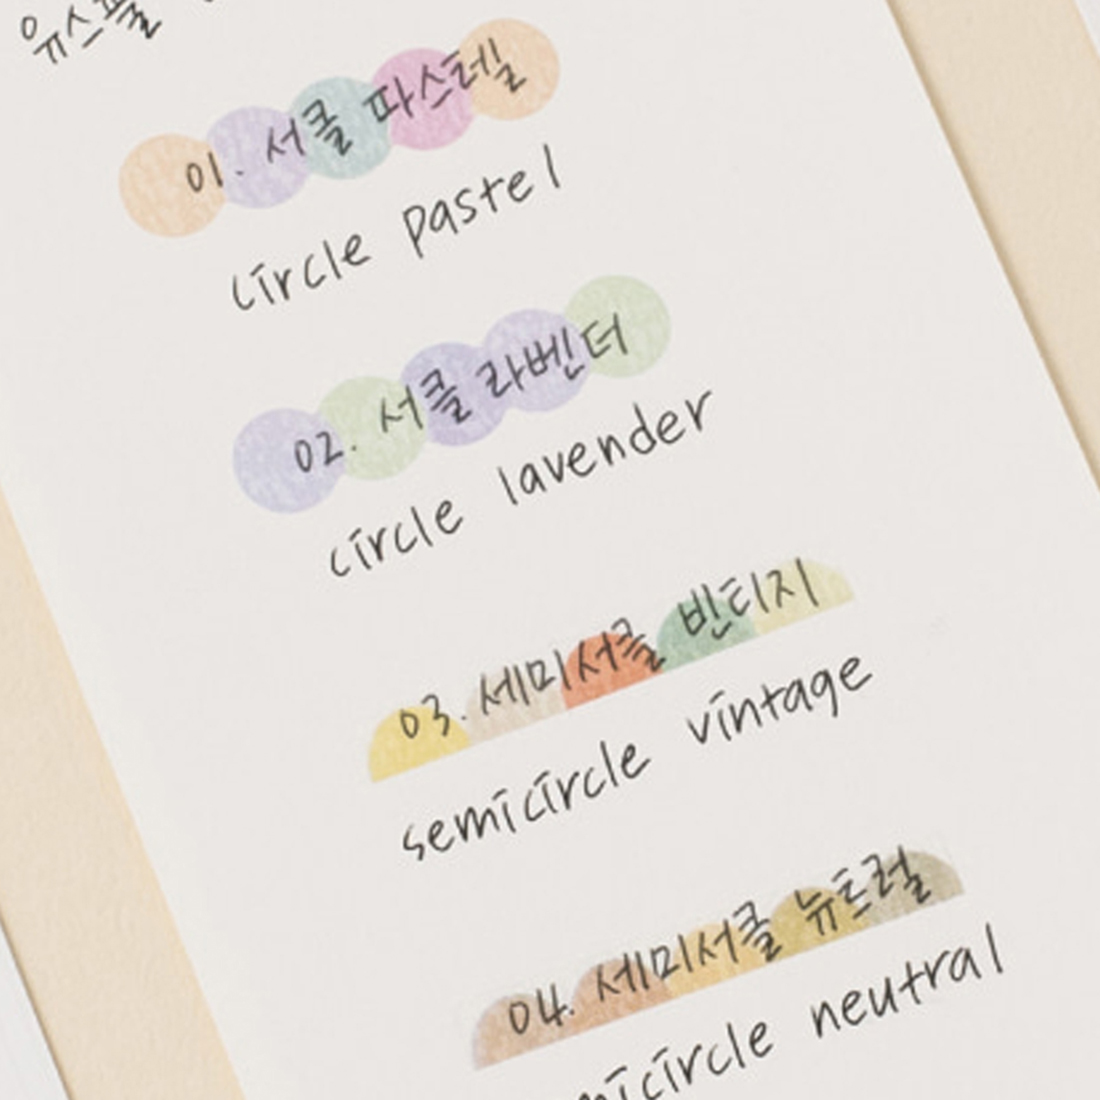 유스풀
01. 서클 파스텔
circle pastel
02. 서클 라벤더
circle lavender
03. 세미서클 빈티지
semicircle vintage
04. 세미서클 뉴트럴
micircle neutral